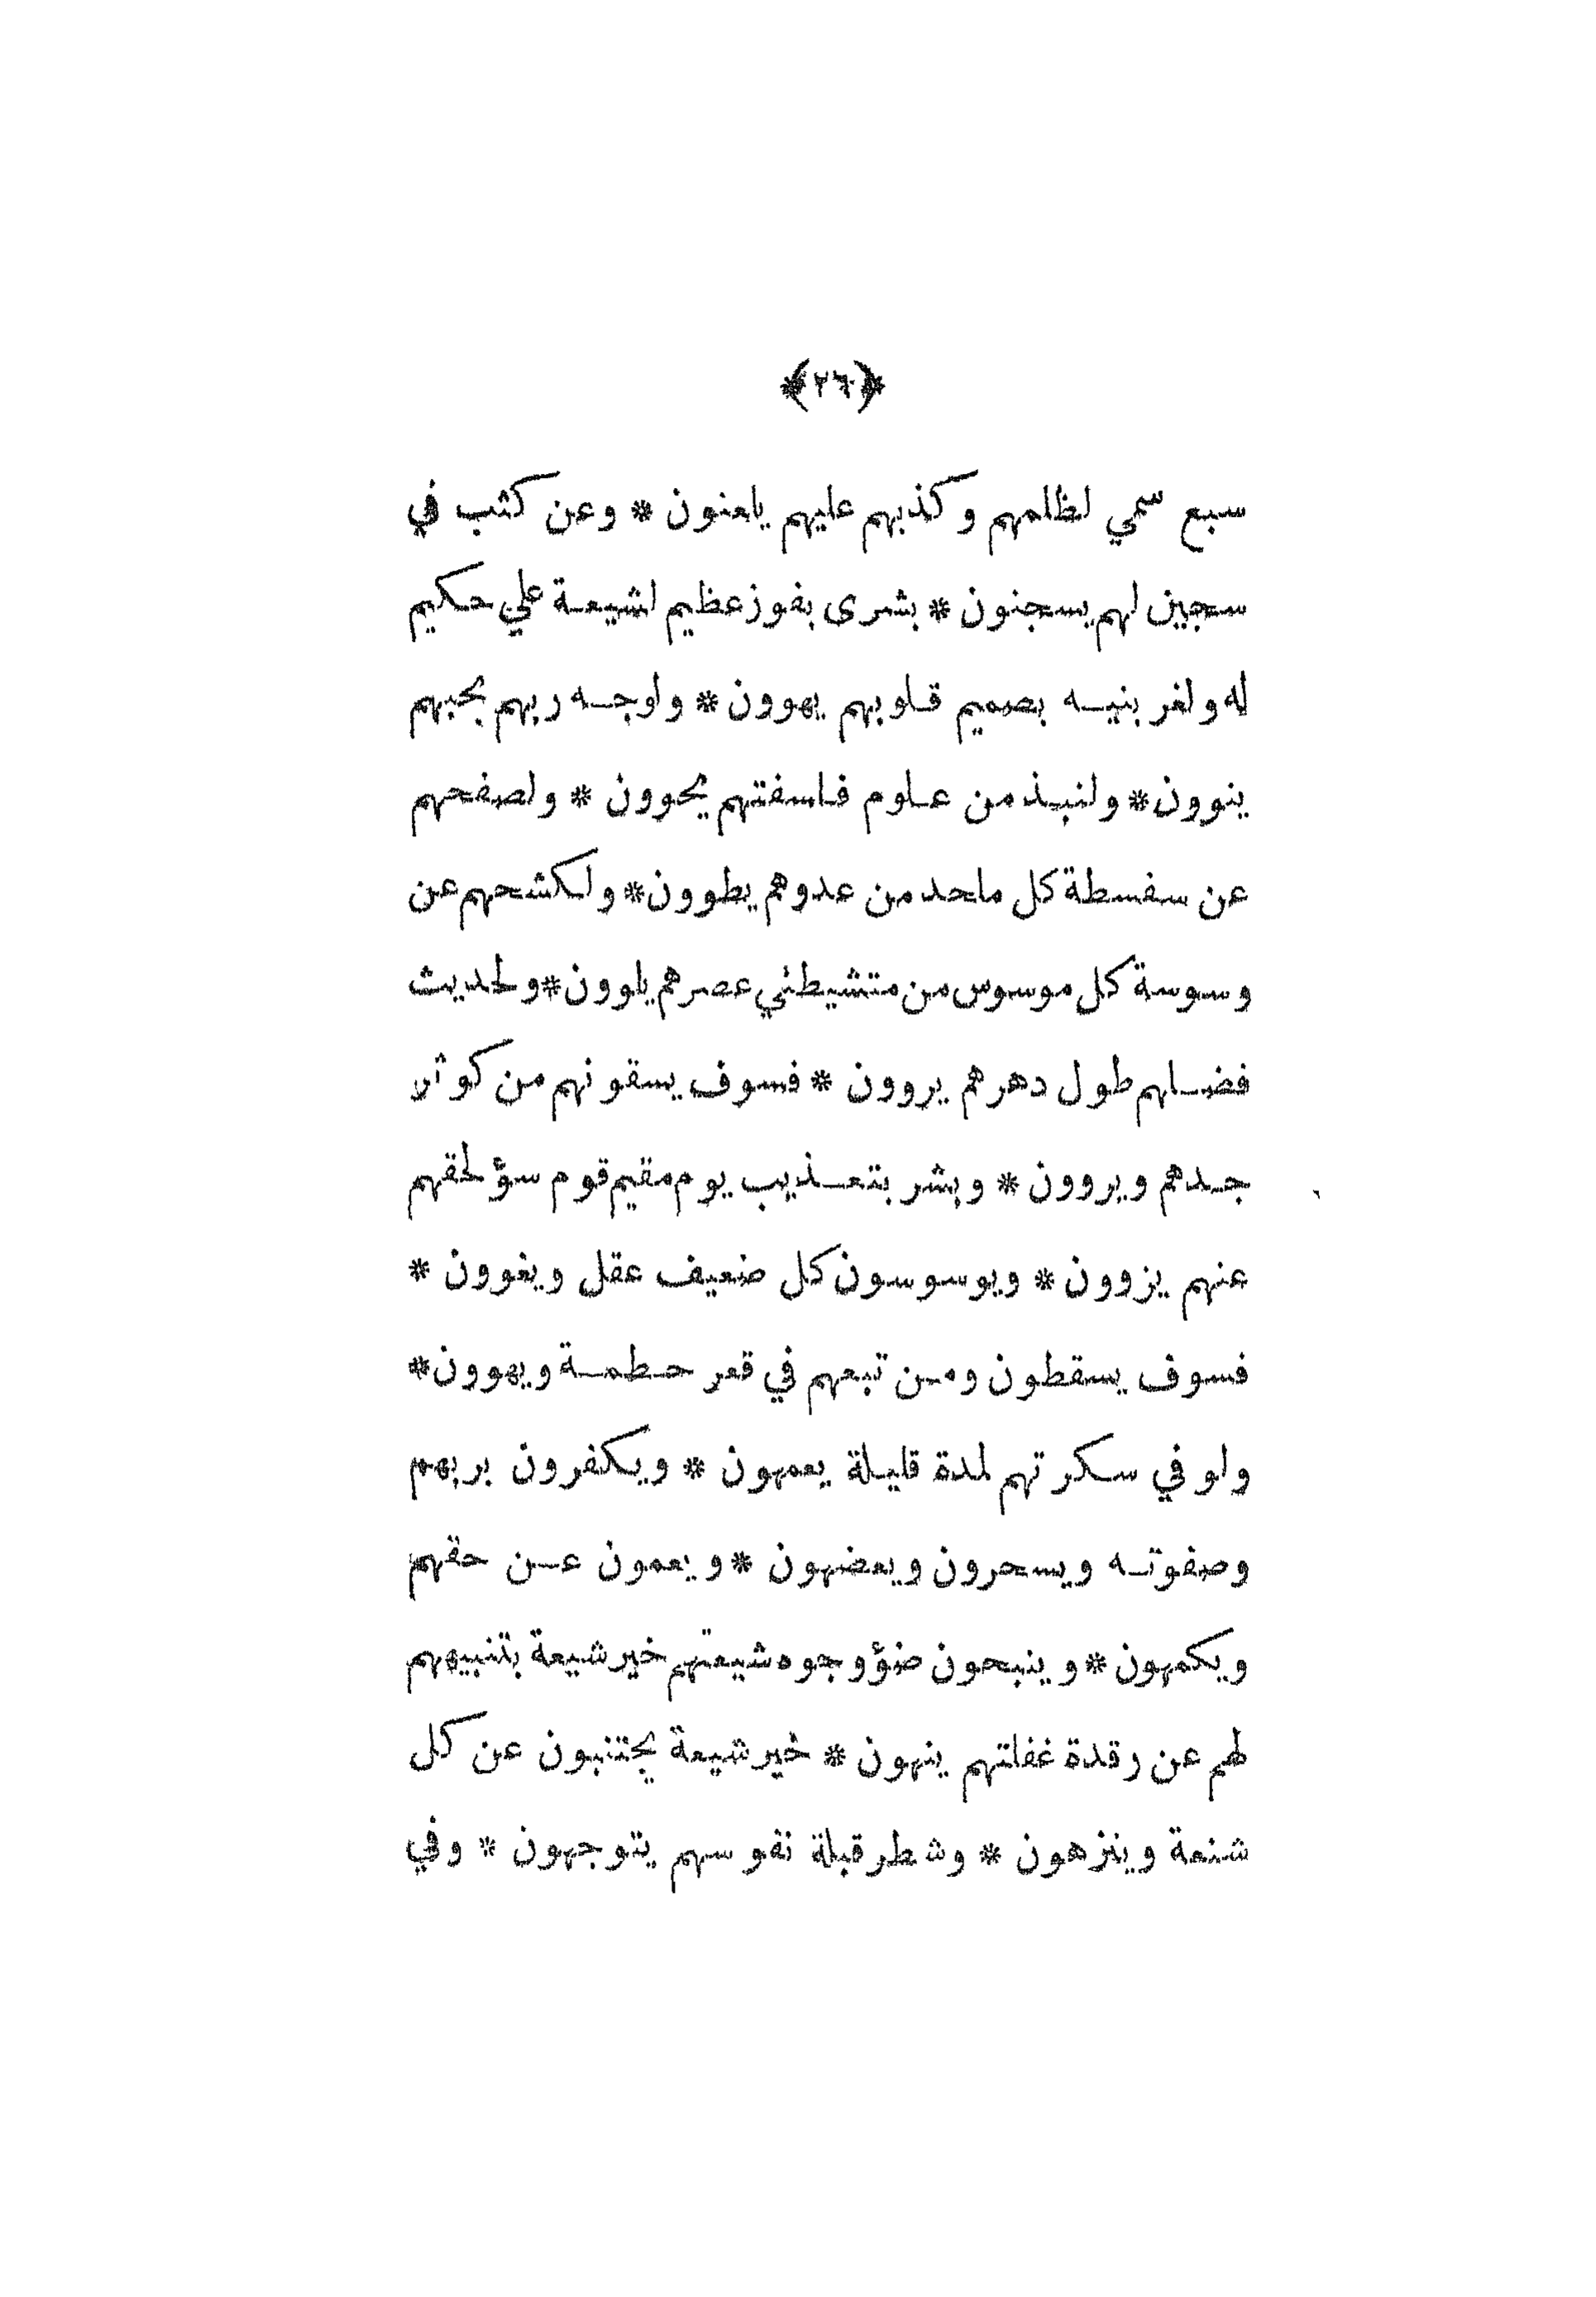 ﴿٢٦﴾
سبع سمي لظلمهم وكذبهم عليهم يلعنون * وعن كثب في
سجين لهم يسجنون * بشرى بفوز عظيم لشيعة علي حكيم
له ولغر بنيه بصميم قلوبهم يهوون * ولوجه ربهم بحبهم
ينوون * ولنبذ من علوم فلسفتهم يحوون * ولصفحهم
عن سفسطة كل ملحد من عدوهم يطوون * ولكشحهم عن
وسوسة كل موسوس من متشيطني عصرهم يلوون * ولحديث
فضلهم طول دهرهم يروون * فسوف يسقونهم من كوثر
جدهم ويروون * وبشر بتعذيب يوم مقيم قوم سؤ لحقهم
عنهم يزوون * ويوسوسون كل ضعيف عقل ويغوون *
فسوف يسقطون ومن تبعهم في قعر حطمة ويهوون *
ولو في سكرتهم لمدة قليلة يعمهون * ويكفرون بربهم
وصفوته ويسحرون ويعضهون * ويعمون عن حقهم
ويكمهون * وينبحون ضؤ وجوه شيعتهم خير شيعة بتنبيههم
لهم عن رقدة غفلتهم ينهون * خير شيعة يجتنبون عن كل
شنعة وينزهون * وشطر قبلة نفوسهم يتوجهون * وفي